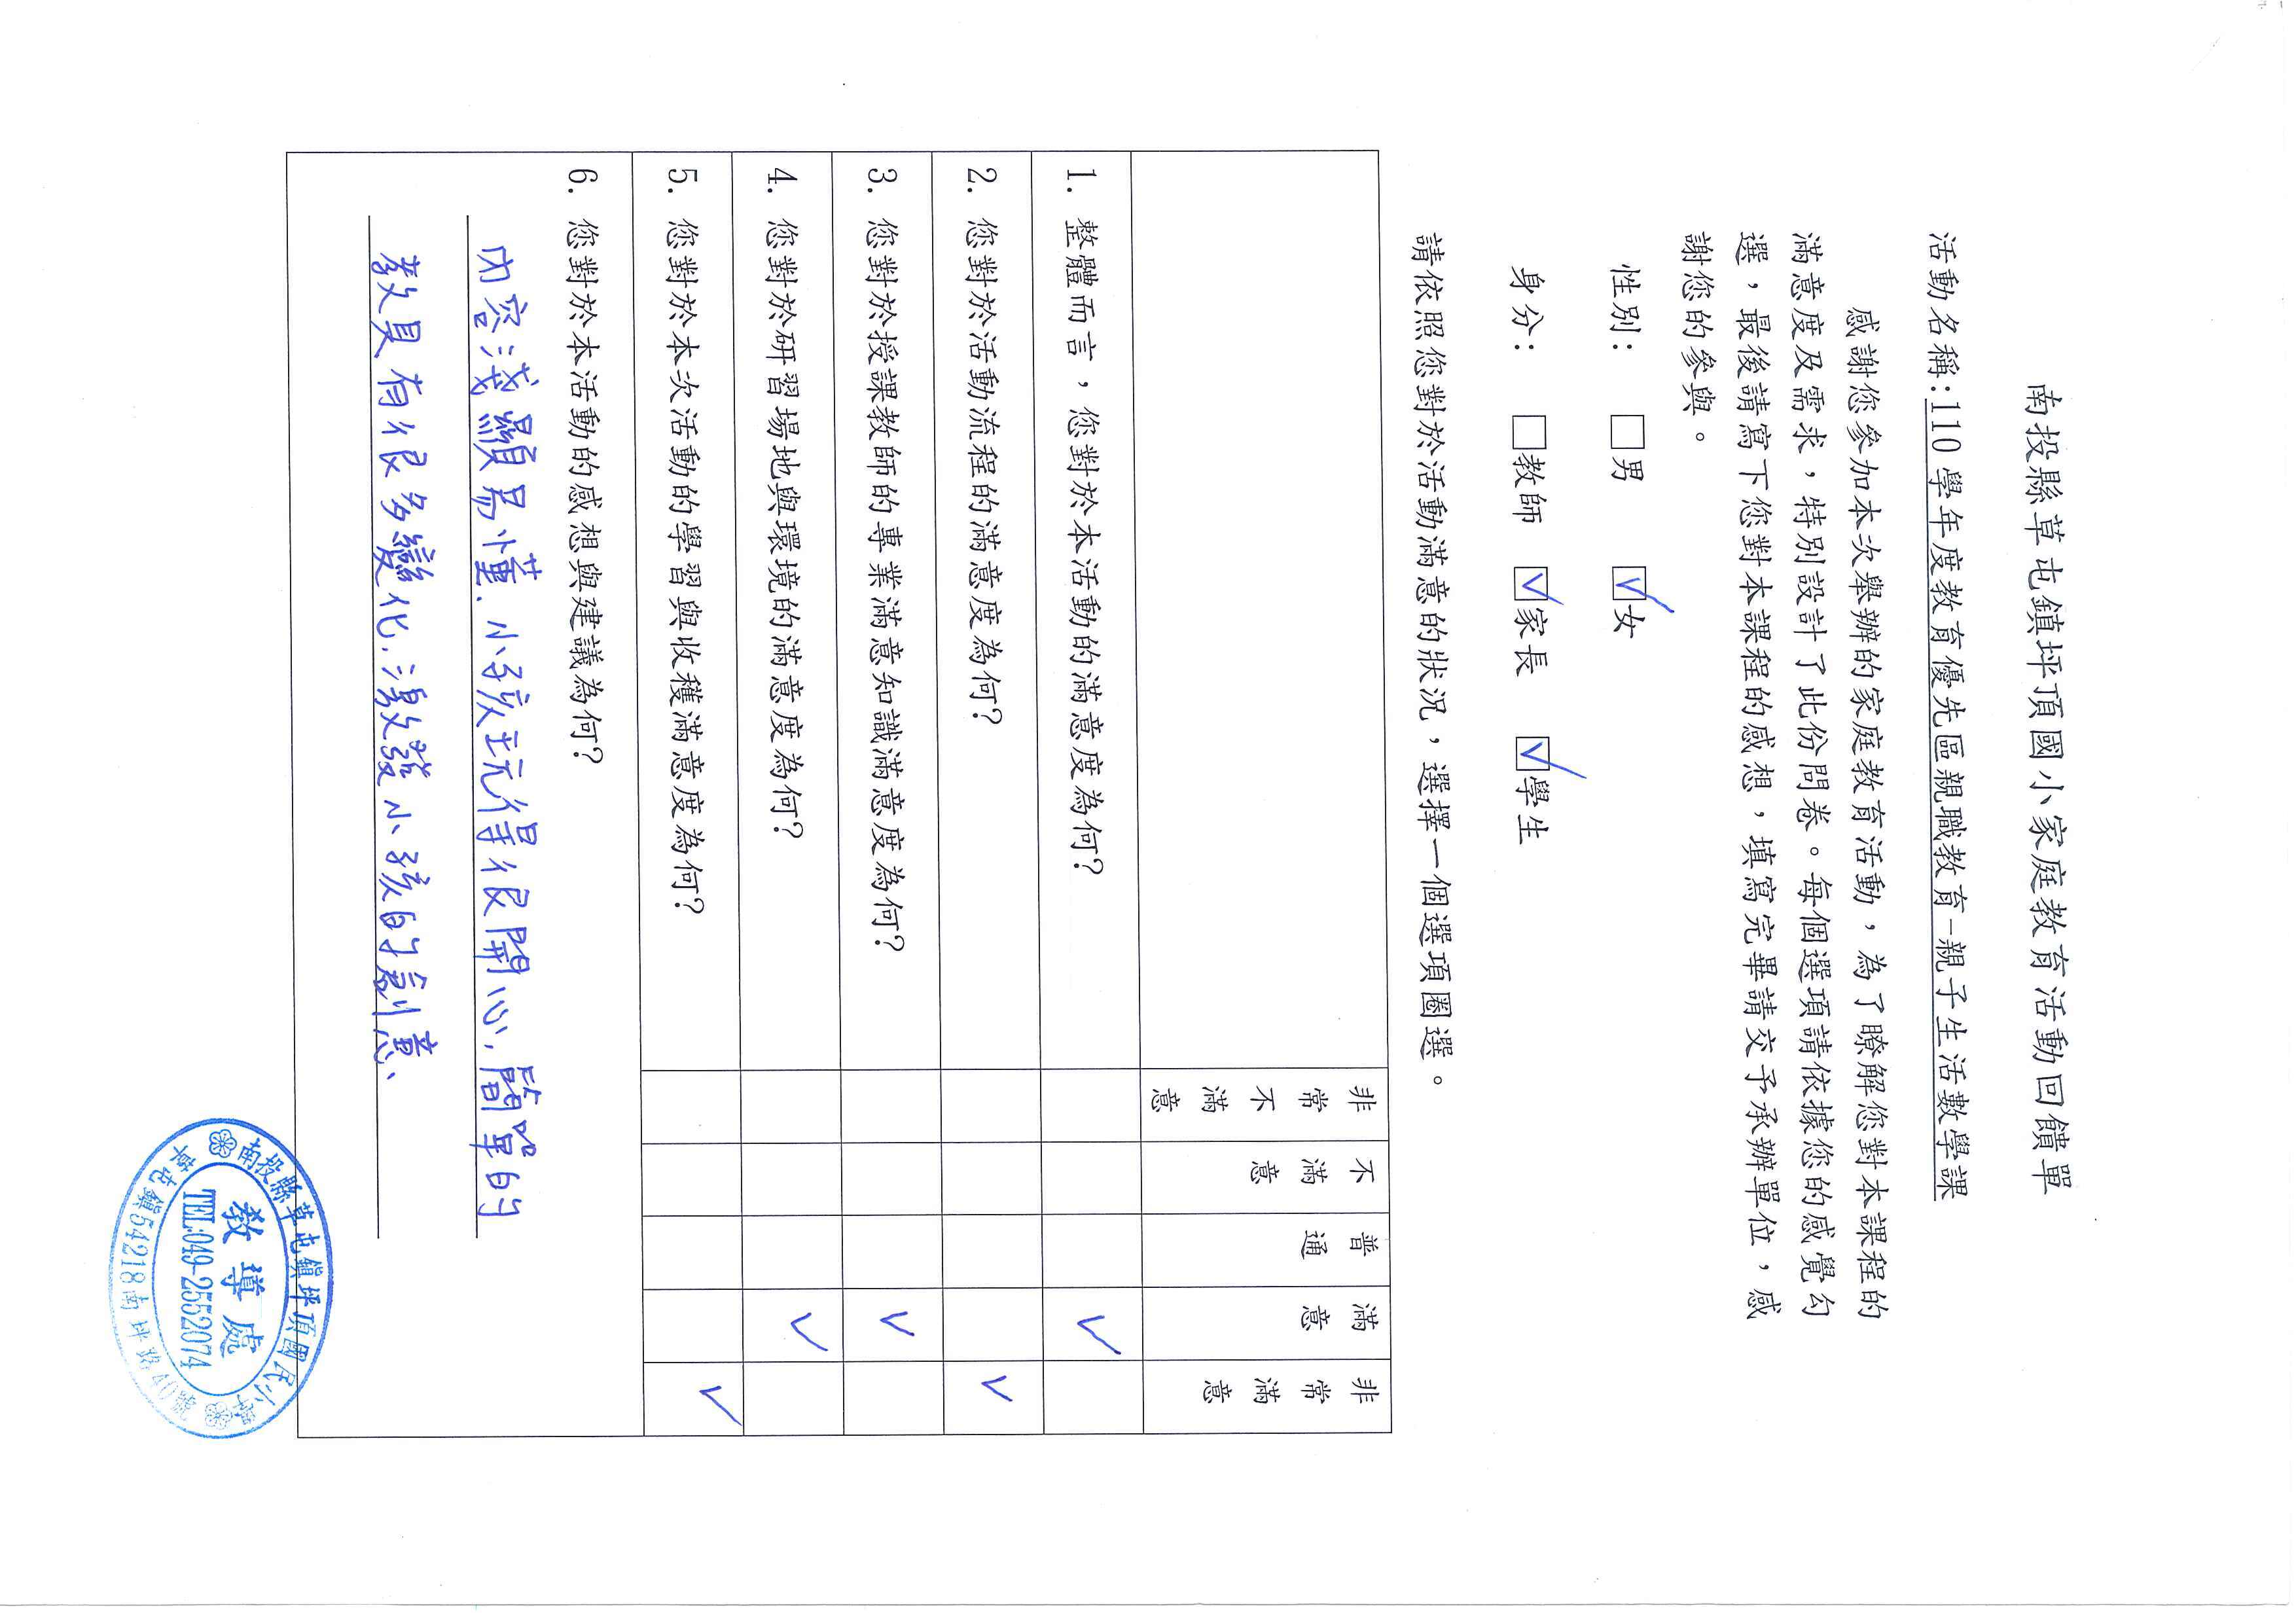 南投縣草屯鎮坪頂國小家庭教育活動回饋單
活動名稱：110 學年度教育優先區親職教育-親子生活數學課
感謝您參加本次舉辦的家庭教育活動，為了瞭解您對本課程的
滿意度及需求，特別設計了此份問卷。每個選項請依據您的感覺勾
選，最後請寫下您對本課程的感想，填寫完畢請交予承辦單位，感
謝您的參與。
性別： □男 ☑女
身分： □教師 ☑家長 ☑學生
請依照您對於活動滿意的狀況，選擇一個選項圈選。
非常不滿意 不滿意 普通 滿意 非常滿意
1. 整體而言，您對於本活動的滿意度為何? ✓
2. 您對於活動流程的滿意度為何? ✓
3. 您對於授課教師的專業滿意知識滿意度為何? ✓
4. 您對於研習場地與環境的滿意度為何? ✓
5. 您對於本次活動的學習與收穫滿意度為何? ✓
6. 您對於本活動的感想與建議為何?
內容淺顯易懂、小孩玩得很開心，簡單的
教具有很多變化，激發小孩的創意、
南投縣草屯鎮坪頂國民小學
教導處
TEL:049-2552074
草屯鎮54218南坪路40號